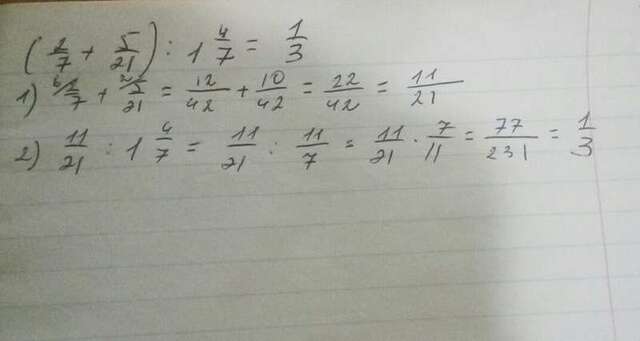 (2/7 + 5/21) : 1 4/7 = 1/3
1) 2/7 + 5/21 = 12/42 + 10/42 = 22/42 = 11/21
2) 11/21 : 1 4/7 = 11/21 : 11/7 = 11/21 · 7/11 = 77/231 = 1/3